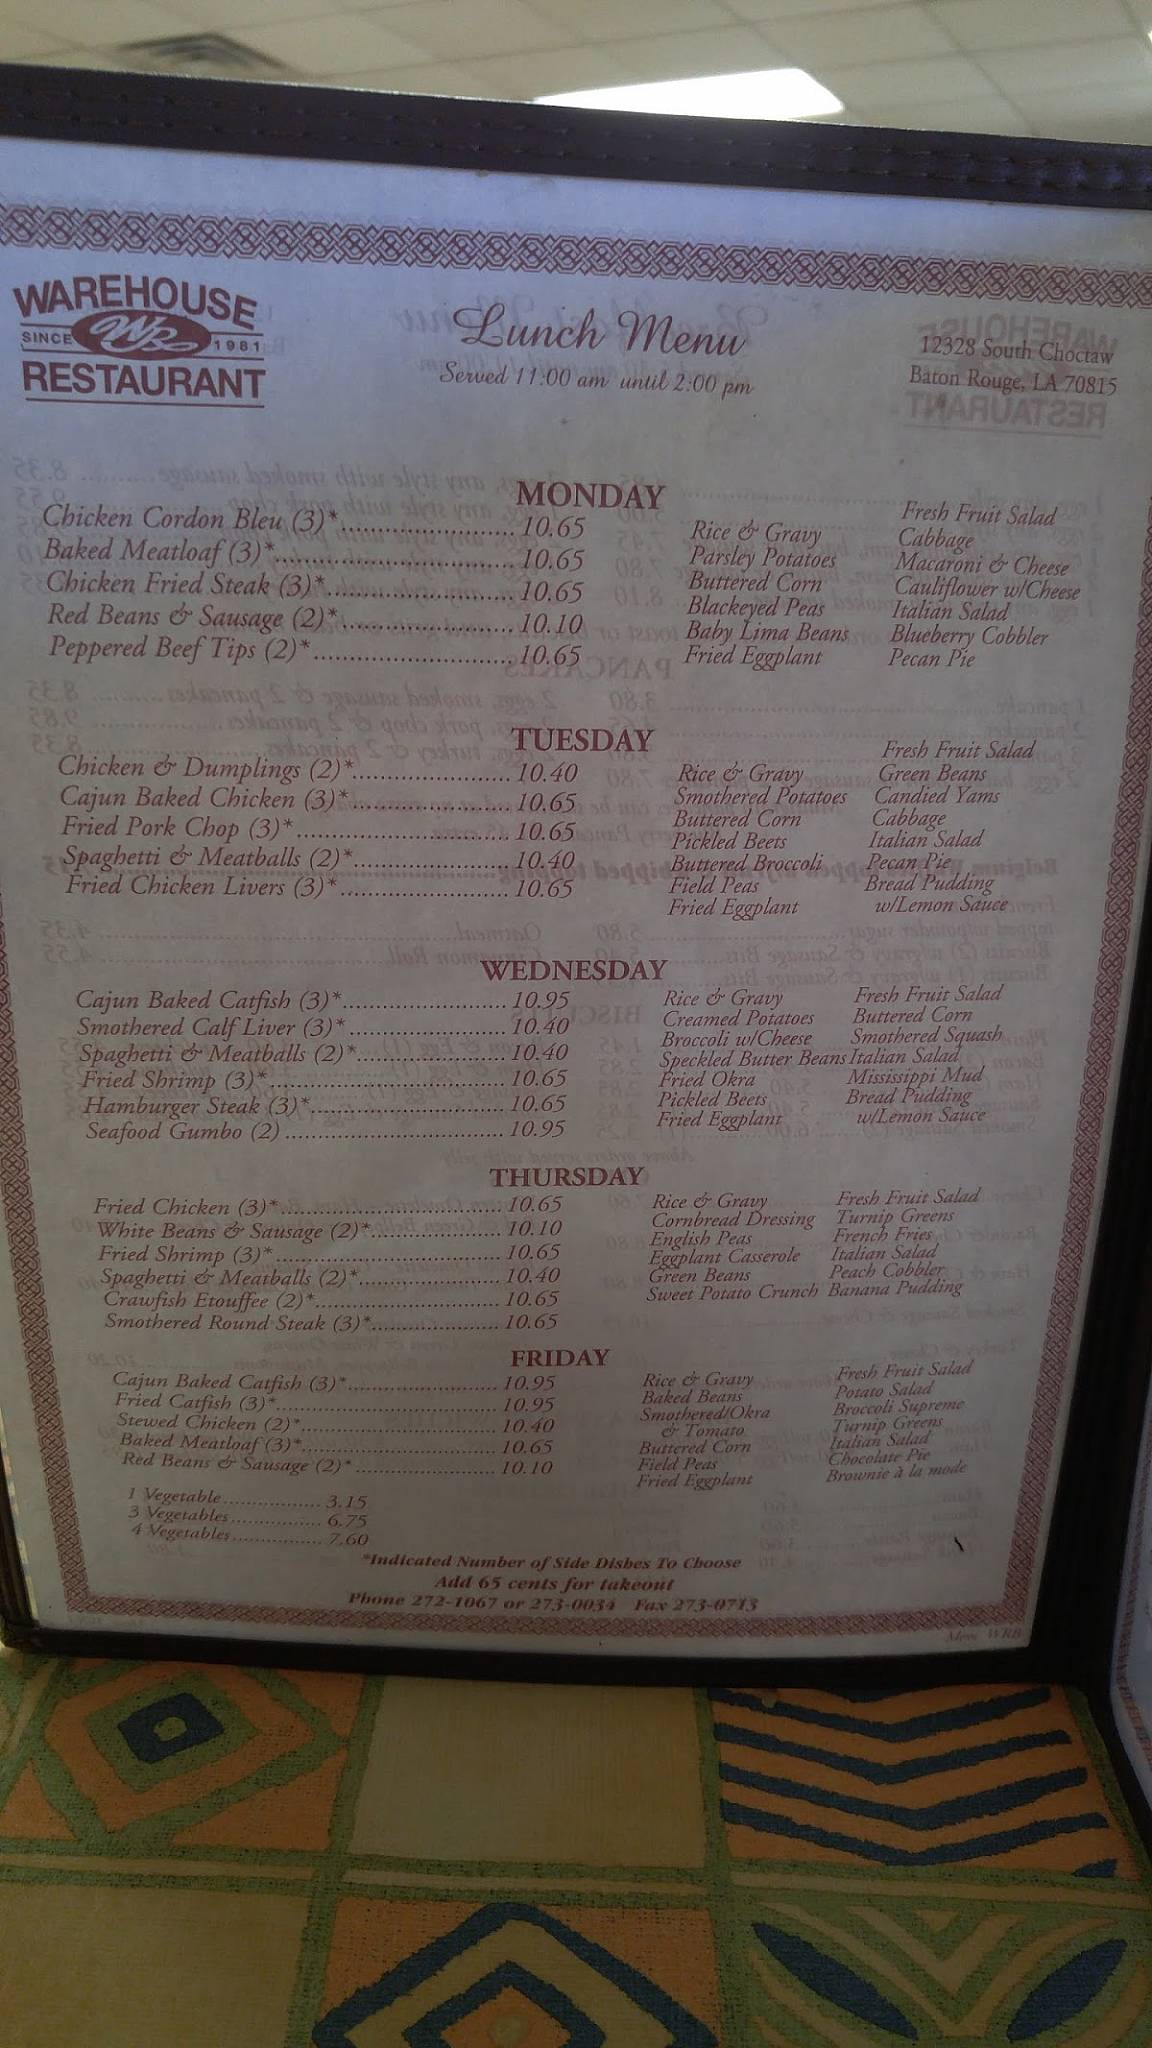 WAREHOUSE
SINCE WR 1981
RESTAURANT
Lunch Menu
Served 11:00 am until 2:00 pm
12328 South Choctaw
Baton Rouge, LA 70815
MONDAY
Chicken Cordon Bleu (3)* 10.65
Baked Meatloaf (3)* 10.65
Chicken Fried Steak (3)* 10.65
Red Beans & Sausage (2)* 10.10
Peppered Beef Tips (2)* 10.65
Rice & Gravy
Parsley Potatoes
Buttered Corn
Blackeyed Peas
Baby Lima Beans
Fried Eggplant
Fresh Fruit Salad
Cabbage
Macaroni & Cheese
Cauliflower w/Cheese
Italian Salad
Blueberry Cobbler
Pecan Pie
TUESDAY
Chicken & Dumplings (2)* 10.40
Cajun Baked Chicken (3)* 10.65
Fried Pork Chop (3)* 10.65
Spaghetti & Meatballs (2)* 10.40
Fried Chicken Livers (3)* 10.65
Rice & Gravy
Smothered Potatoes
Buttered Corn
Pickled Beets
Buttered Broccoli
Field Peas
Fried Eggplant
Fresh Fruit Salad
Green Beans
Candied Yams
Cabbage
Italian Salad
Pecan Pie
Bread Pudding
w/Lemon Sauce
WEDNESDAY
Cajun Baked Catfish (3)* 10.95
Smothered Calf Liver (3)* 10.40
Spaghetti & Meatballs (2)* 10.40
Fried Shrimp (3)* 10.65
Hamburger Steak (3)* 10.65
Seafood Gumbo (2) 10.95
Rice & Gravy
Creamed Potatoes
Broccoli w/Cheese
Speckled Butter Beans
Fried Okra
Pickled Beets
Fried Eggplant
Fresh Fruit Salad
Buttered Corn
Smothered Squash
Italian Salad
Mississippi Mud
Bread Pudding
w/Lemon Sauce
THURSDAY
Fried Chicken (3)* 10.65
White Beans & Sausage (2)* 10.10
Fried Shrimp (3)* 10.65
Spaghetti & Meatballs (2)* 10.40
Crawfish Etouffee (2)* 10.65
Smothered Round Steak (3)* 10.65
Rice & Gravy
Cornbread Dressing
English Peas
Eggplant Casserole
Green Beans
Sweet Potato Crunch
Fresh Fruit Salad
Turnip Greens
French Fries
Italian Salad
Peach Cobbler
Banana Pudding
FRIDAY
Cajun Baked Catfish (3)* 10.95
Fried Catfish (3)* 10.95
Stewed Chicken (2)* 10.40
Baked Meatloaf (3)* 10.65
Red Beans & Sausage (2)* 10.10
Rice & Gravy
Baked Beans
Smothered/Okra
& Tomato
Buttered Corn
Field Peas
Fried Eggplant
Fresh Fruit Salad
Potato Salad
Broccoli Supreme
Turnip Greens
Italian Salad
Chocolate Pie
Brownie à la mode
1 Vegetable 3.15
3 Vegetables 6.75
4 Vegetables 7.60
*Indicated Number of Side Dishes To Choose
Add 65 cents for takeout
Phone 272-1067 or 273-0034 Fax 273-0713